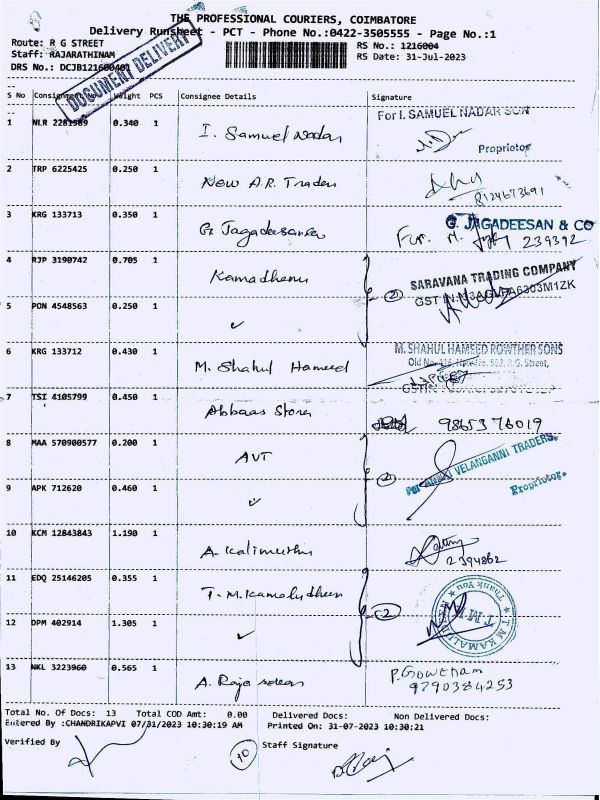 THE PROFESSIONAL COURIERS, COIMBATORE
Delivery Runsheet - PCT - Phone No.:0422-3505555 - Page No.:1
Route: R G STREET
RS No.: 1216004
Staff: RAJARATHINAM
RS Date: 31-Jul-2023
DRS No.: DCJB121600401
DOCUMENT DELIVERY
S No Consignment No Weight PCS Consignee Details Signature
1 NLR 2281589 0.340 1 I. Samuel Nadar For I. SAMUEL NADAR SON
Proprietor
2 TRP 6225425 0.250 1 New A.R. Traders
8124673691
3 KRG 133713 0.350 1 G. Jagadeesan G. JAGADEESAN & CO
For. M. 239392
4 RJP 3190742 0.705 1 Kamadhenu SARAVANA TRADING COMPANY
2
5 PON 4548563 0.250 1 ✓
6 KRG 133712 0.430 1 M. Shahul Hameed M. SHAHUL HAMEED ROWTHER SONS
7 TSI 4105799 0.450 1 Abbaas Stores 9865376019
8 MAA 570900577 0.200 1 AVT 2 VELANGANNI TRADERS.
Proprietor.
9 APK 712620 0.460 1 ✓
10 KCM 12843843 1.190 1 A. Kalimuthu
2394862
11 EDQ 25146205 0.355 1 T. M. Kamaludheen Thank You
T.M.
2
12 DPM 402914 1.305 1 ✓
13 NKL 3223960 0.565 1 A. P. Gowtham
9790384253
Total No. Of Docs: 13 Total COD Amt: 0.00 Delivered Docs: Non Delivered Docs:
Entered By :CHANDRIKAPVI 07/31/2023 10:30:19 AM Printed On: 31-07-2023 10:30:21
Verified By 10 Staff Signature